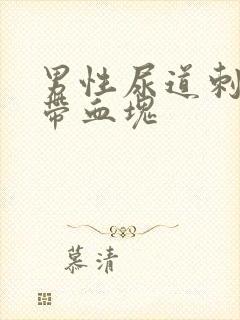 男性尿道刺
带血块
慕清